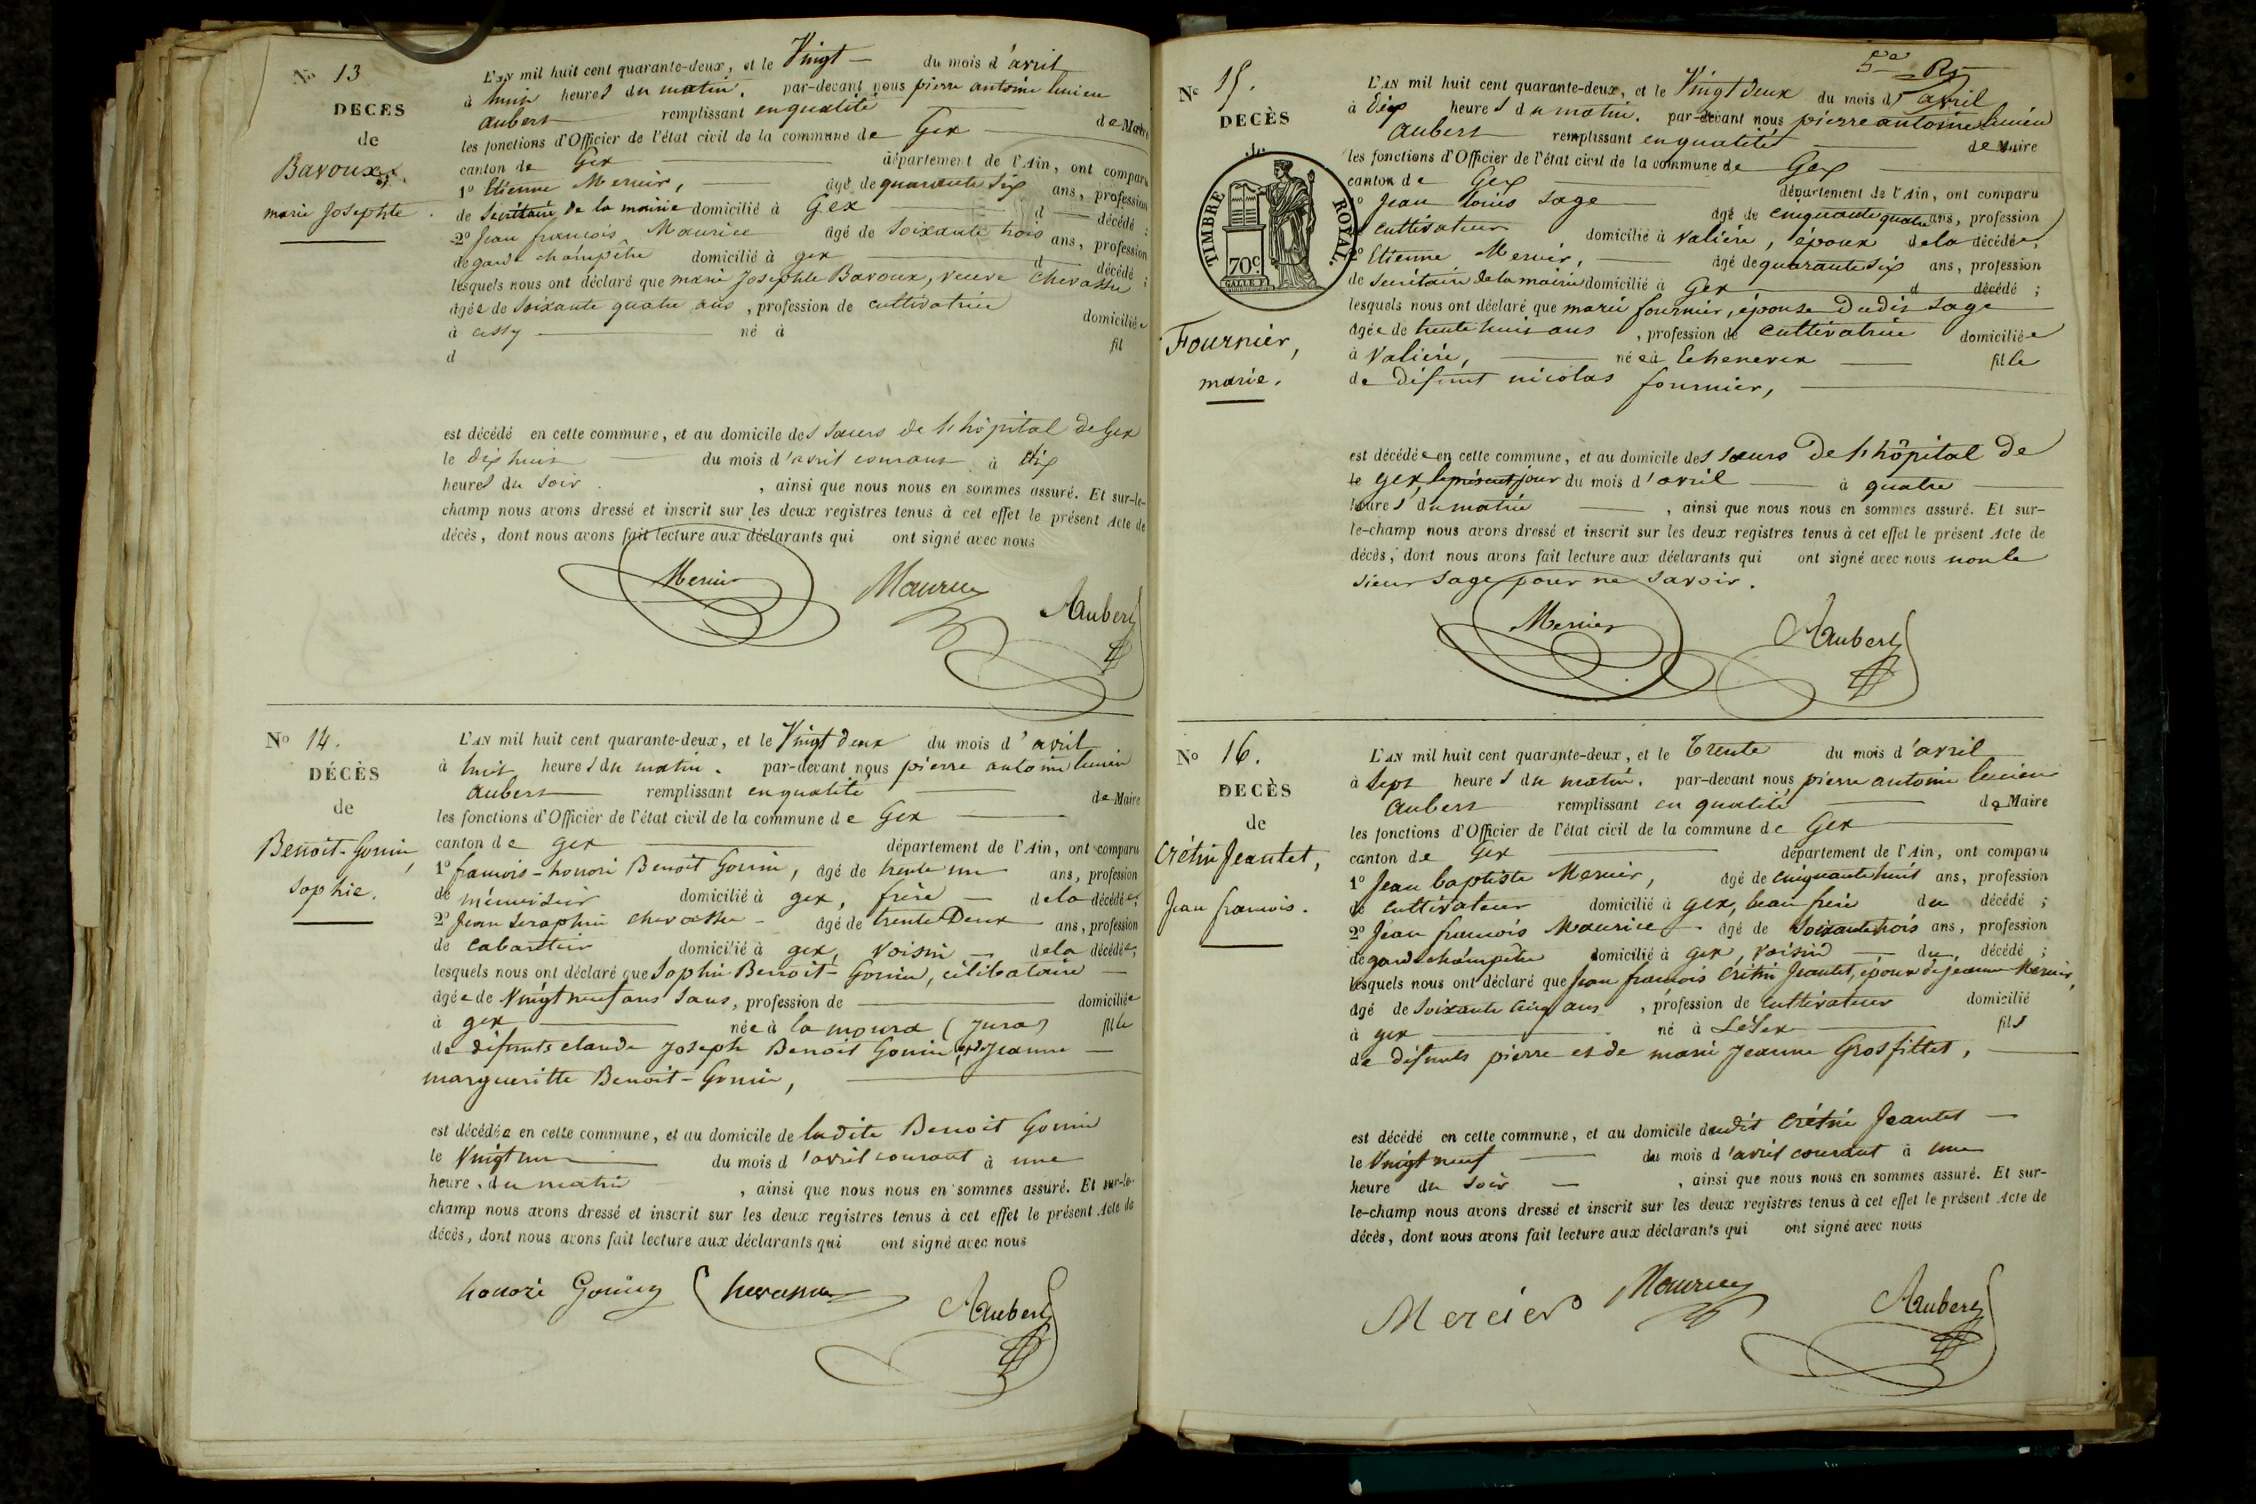 No 13
DECES
de
Bavoux
marie Josephte
L'AN mil huit cent quarante-deux, et le Vingt du mois d'avril
à huit heures du matin. par-devant nous pierre antoine lucien
aubert remplissant en qualité de Maire
les fonctions d'Officier de l'état civil de la commune de Gex
canton de Gex département de l'Ain, ont comparu
1o Etienne Mercier, âgé de quarante six ans, profession
de Secrétaire de la mairie domicilié à Gex d décédé ;
2o Jean francois Maurice âgé de Soixante trois ans, profession
de garde champêtre domicilié à gex d décédé ;
lesquels nous ont déclaré que marie Josephte Bavoux, veuve Chevassu
âgée de Soixante quatre ans, profession de cultivatrice domiciliée
à cessy né à fil
d
est décédé en cette commune, et au domicile des sœurs de l'hôpital de Gex
le dix huit du mois d'avril courant à dix
heures du soir , ainsi que nous nous en sommes assuré. Et sur-le-
champ nous avons dressé et inscrit sur les deux registres tenus à cet effet le présent Acte de
décès, dont nous avons fait lecture aux déclarants qui ont signé avec nous
Mercier Maurice Aubert
No 14.
DÉCÈS
de
Benoit-Gonin,
Sophie.
L'AN mil huit cent quarante-deux, et le Vingt deux du mois d'avril
à huit heures du matin. par-devant nous pierre antoine lucien
aubert remplissant en qualité de Maire
les fonctions d'Officier de l'état civil de la commune de Gex
canton de gex département de l'Ain, ont comparu
1o francois-honoré Benoit Gonin, âgé de trente un ans, profession
de ménuisier domicilié à gex, frère de la décédée,
2o Jean Seraphin chevassu - âgé de trente Deux ans, profession
de cabaretier domicilié à gex, voisin de la décédée;
lesquels nous ont déclaré que Sophie Benoit-Gonin, célibataire
âgée de Vingt neuf ans Sans, profession de domiciliée
à gex née à la moura (Jura) fille
de défunts claude Joseph Benoit Gonin, et de Jeanne
margueritte Benoit-Gonin,
est décédée en cette commune, et au domicile de ladite Benoit Gonin
le Vingt un du mois d'avril courant à une
heure du matin , ainsi que nous nous en sommes assuré. Et sur-le-
champ nous avons dressé et inscrit sur les deux registres tenus à cet effet le présent Acte de
décès, dont nous avons fait lecture aux déclarants qui ont signé avec nous
honoré Gonin Chevassu Aubert
5e
No 15.
DECÈS
de
TIMBRE ROYAL.
70c
Fournier,
marie.
L'AN mil huit cent quarante-deux, et le Vingt deux du mois d'avril
à dix heures du matin. par-devant nous pierre antoine lucien
aubert remplissant en qualité de Maire
les fonctions d'Officier de l'état civil de la commune de Gex
canton de Gex département de l'Ain, ont comparu
1o Jean louis Sage âgé de cinquante quatre ans, profession
de cultivateur domicilié à Valière, époux de la décédée,
2o Etienne Mercier, âgé de quarante six ans, profession
de secrétaire de la mairie domicilié à Gex d décédé ;
lesquels nous ont déclaré que marie fournier, épouse Dudit Sage
âgée de trente huit ans, profession de cultivatrice domiciliée
à Valière, née à Echenevex fille
de défunt nicolas fournier,
est décédée en cette commune, et au domicile des sœurs De l'hôpital De
le Gex, le présent jour du mois d'avril à quatre
heures du matin , ainsi que nous nous en sommes assuré. Et sur-
le-champ nous avons dressé et inscrit sur les deux registres tenus à cet effet le présent Acte de
décès, dont nous avons fait lecture aux déclarants qui ont signé avec nous non le
sieur Sage pour ne savoir.
Mercier Aubert
No 16.
DECÈS
de
Crétin Jeantet,
Jean francois.
L'AN mil huit cent quarante-deux, et le Trente du mois d'avril
à Sept heures du matin. par-devant nous pierre antoine lucien
aubert remplissant en qualité de Maire
les fonctions d'Officier de l'état civil de la commune de Gex
canton de Gex département de l'Ain, ont comparu
1o Jean baptiste Mercier, âgé de cinquante huit ans, profession
de cultivateur domicilié à gex, beau frère du décédé ;
2o Jean francois Maurice âgé de Soixante trois ans, profession
de garde champêtre domicilié à gex, voisin du décédé ;
lesquels nous ont déclaré que Jean francois Crétin Jeantet, époux de Jeanne Mercier,
âgé de Soixante cinq ans, profession de cultivateur domicilié
à gex né à Lélex fils
de défunts pierre et de marie Jeanne Grosfillet,
est décédé en cette commune, et au domicile dudit Crétin Jeantet
le Vingt neuf du mois d'avril courant à une
heure du soir , ainsi que nous nous en sommes assuré. Et sur-
le-champ nous avons dressé et inscrit sur les deux registres tenus à cet effet le présent Acte de
décès, dont nous avons fait lecture aux déclarants qui ont signé avec nous
Mercier Maurice Aubert